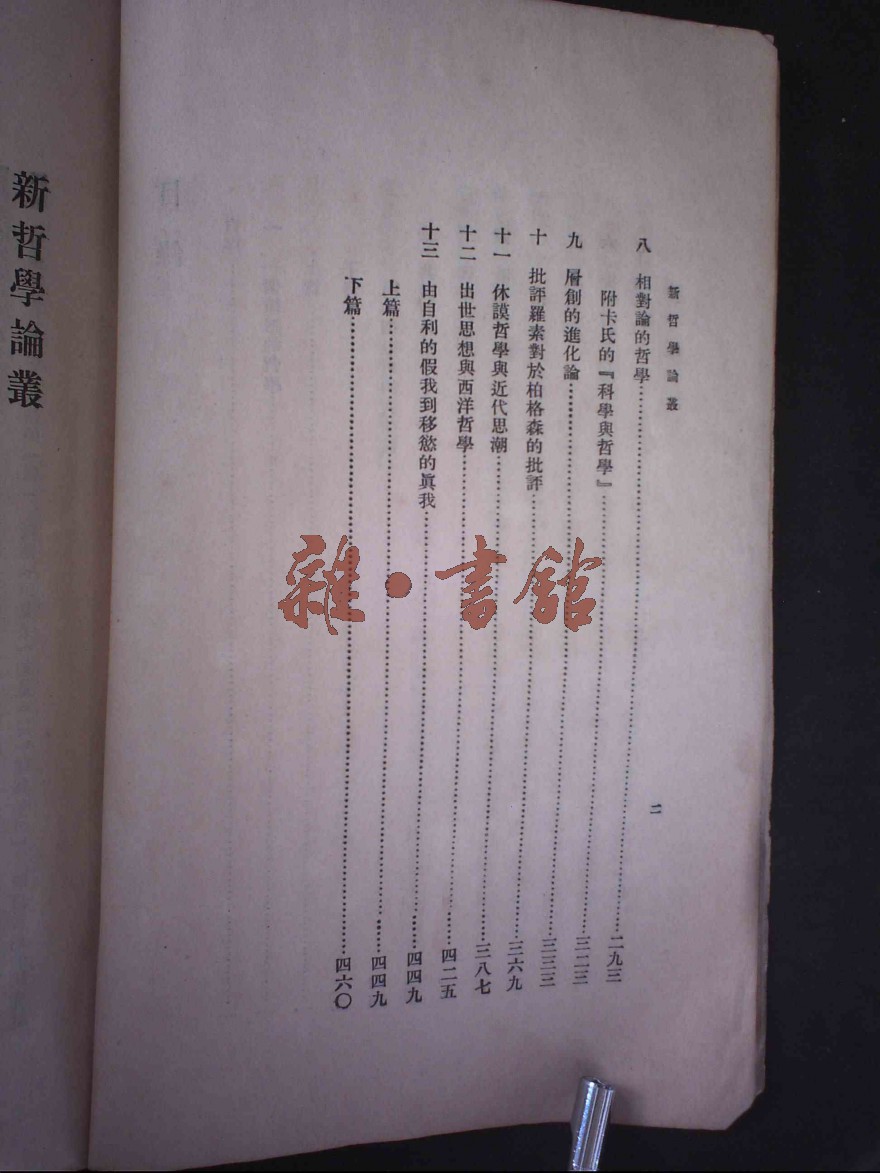 新哲學論叢
二
八 相對論的哲學……二九三
附卡氏的『科學與哲學』……三二三
九 層創的進化論……三三三
十 批評羅素對於柏格森的批評……三六九
十一 休謨哲學與近代思潮……三八七
十二 出世思想與西洋哲學……四二五
十三 由自利的假我到移慾的眞我……四四九
上篇……四四九
下篇……四六〇
新哲學論叢
雜·書館